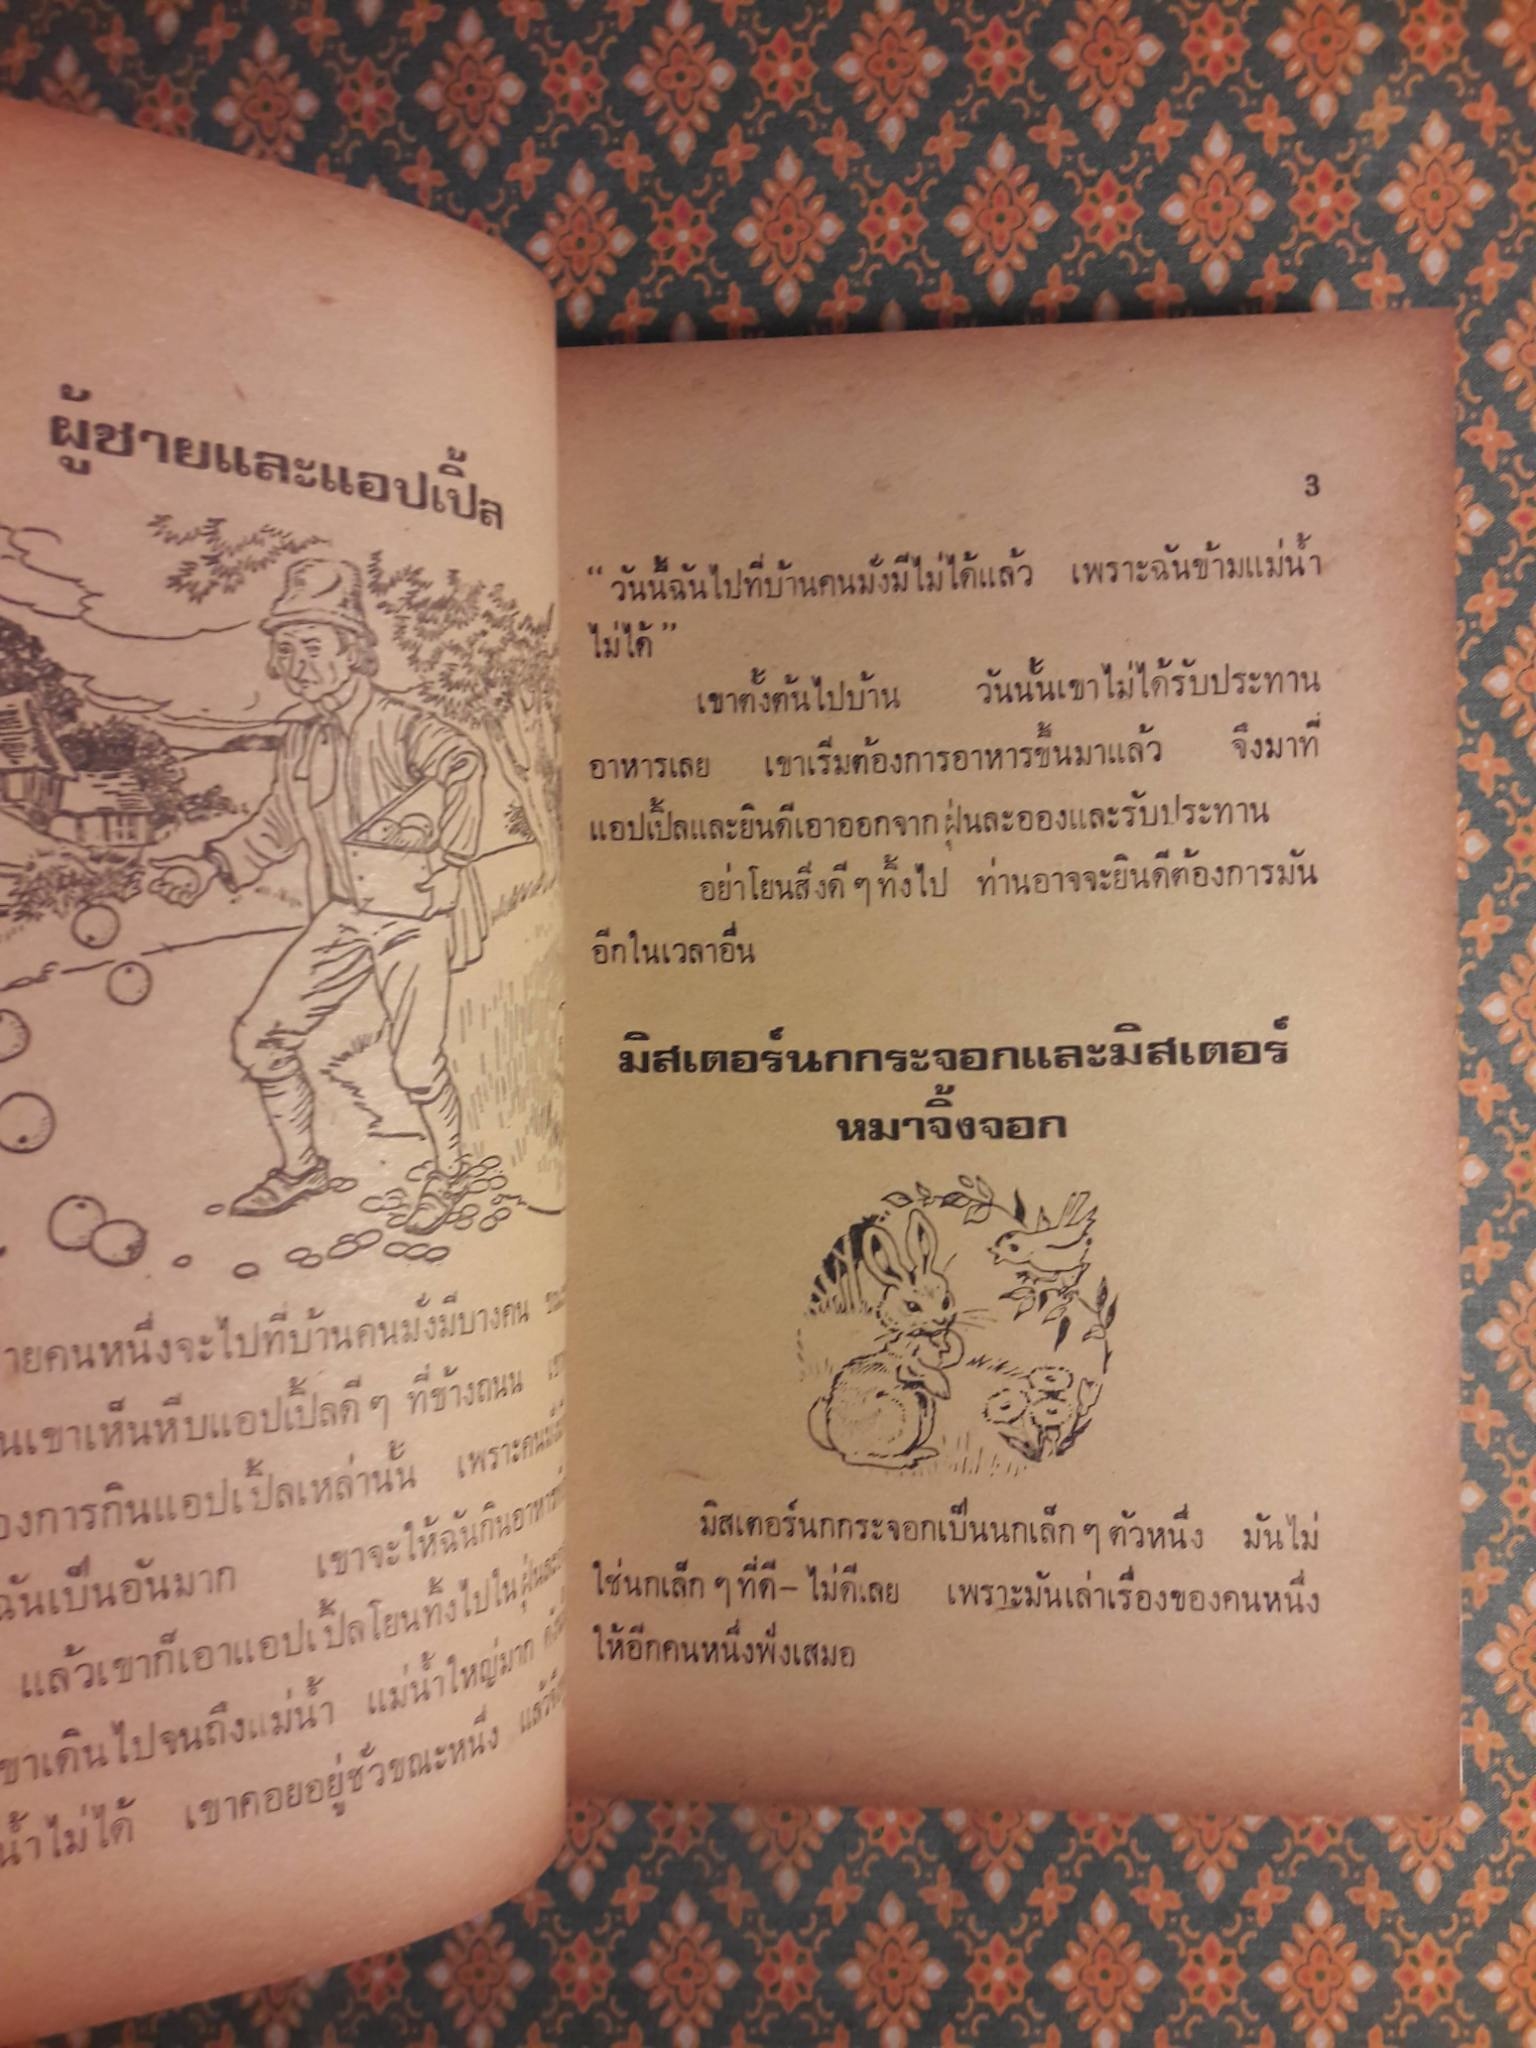 ผู้ชายและแอปเปิ้ล
ายคนหนึ่งจะไปที่บ้านคนมั่งมีบางคน
นเขาเห็นหีบแอปเปิ้ลดี ๆ ที่ข้างถนน
องการกินแอปเปิ้ลเหล่านั้น เพราะคนมั่งมี
ฉันเป็นอันมาก เขาจะให้ฉันกินอาหาร
แล้วเขาก็เอาแอปเปิ้ลโยนทิ้งไปในฝุ่นละออ
ขาเดินไปจนถึงแม่น้ำ แม่น้ำใหญ่มาก
น้ำไม่ได้ เขาคอยอยู่ชั่วขณะหนึ่ง
3
“ วันนี้ฉันไปที่บ้านคนมั่งมีไม่ได้แล้ว เพราะฉันข้ามแม่น้ำ
ไม่ได้ ”
เขาตั้งต้นไปบ้าน วันนั้นเขาไม่ได้รับประทาน
อาหารเลย เขาเริ่มต้องการอาหารขึ้นมาแล้ว จึงมาที่
แอปเปิ้ลและยินดีเอาออกจากฝุ่นละอองและรับประทาน
อย่าโยนสิ่งดี ๆ ทิ้งไป ท่านอาจจะยินดีต้องการมัน
อีกในเวลาอื่น
มิสเตอร์นกกระจอกและมิสเตอร์
หมาจิ้งจอก
มิสเตอร์นกกระจอกเป็นนกเล็ก ๆ ตัวหนึ่ง มันไม่
ใช่นกเล็ก ๆ ที่ดี – ไม่ดีเลย เพราะมันเล่าเรื่องของคนหนึ่ง
ให้อีกคนหนึ่งฟังเสมอ